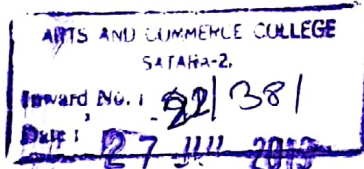 ARTS AND COMMERCE COLLEGE
SATARA-2.
Inward No. : 22/381
Date : 27